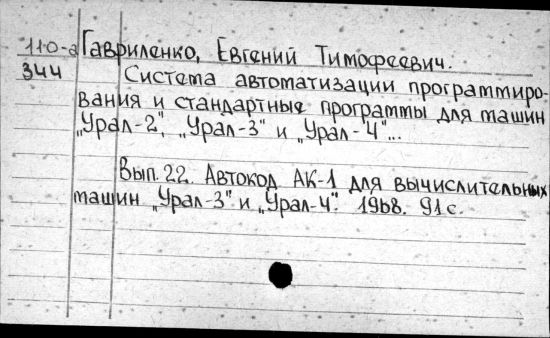 110-а Гавриленко, Евгений Тимофеевич.
344 Система автоматизации программиро-
вания и стандартные программы для машин
„Урал-2", „Урал-3" и „Урал-4"...
Вып. 22. Автокод АК-1 для вычислительных
машин „Урал-3" и „Урал-4". 1968. 91 с.